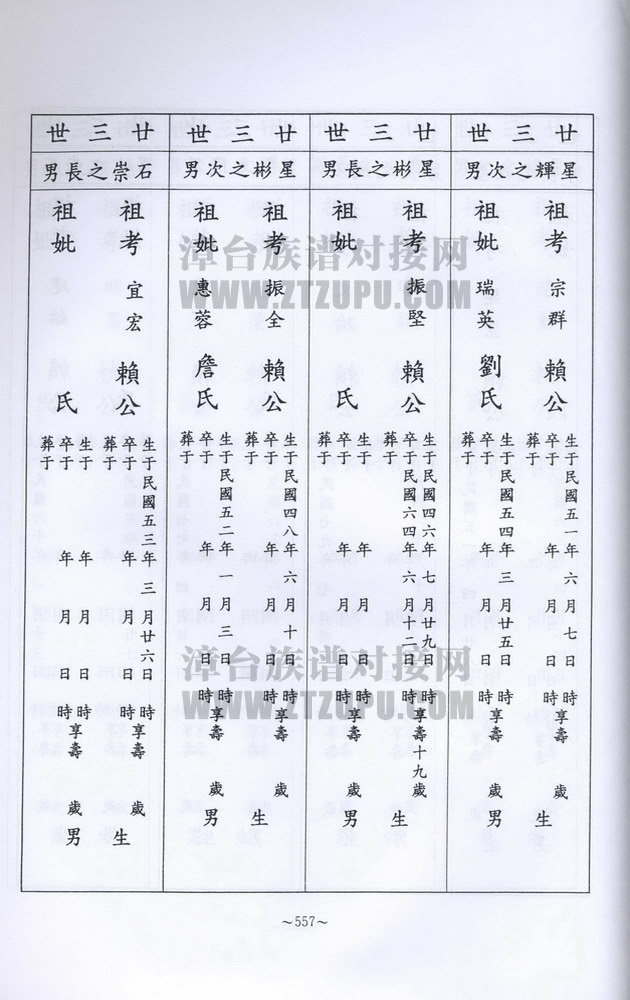 廿三世
星輝之次男
祖考 宗群 賴公
生于民國五一年六月七日時享壽
卒于 年 月 日 歲
葬于
祖妣 瑞英 劉氏
生于民國五四年三月廿五日時享壽
卒于 年 月 日時 歲
葬于
生 男
廿三世
星彬之長男
祖考 振堅 賴公
生于民國四六年七月廿九日時享壽十九歲
卒于民國六四年六月十二日時
葬于
祖妣 氏
生于 年 月 日時享壽
卒于 年 月 日時 歲
葬于
生 男
廿三世
星彬之次男
祖考 振全 賴公
生于民國四八年六月十日時享壽
卒于 年 月 日 歲
葬于
祖妣 惠蓉 詹氏
生于民國五二年一月三日時享壽
卒于 年 月 日時 歲
葬于
生 男
廿三世
石崇之長男
祖考 宜宏 賴公
生于民國五三年三月廿六日時
卒于 年 月 日
葬于
祖妣 氏
生于 年 月 日時享壽
卒于 年 月 日時 歲
葬于
生 男
～557～
漳台族谱对接网
WWW.ZTZUPU.COM
漳台族谱对接网
WWW.ZTZUPU.COM